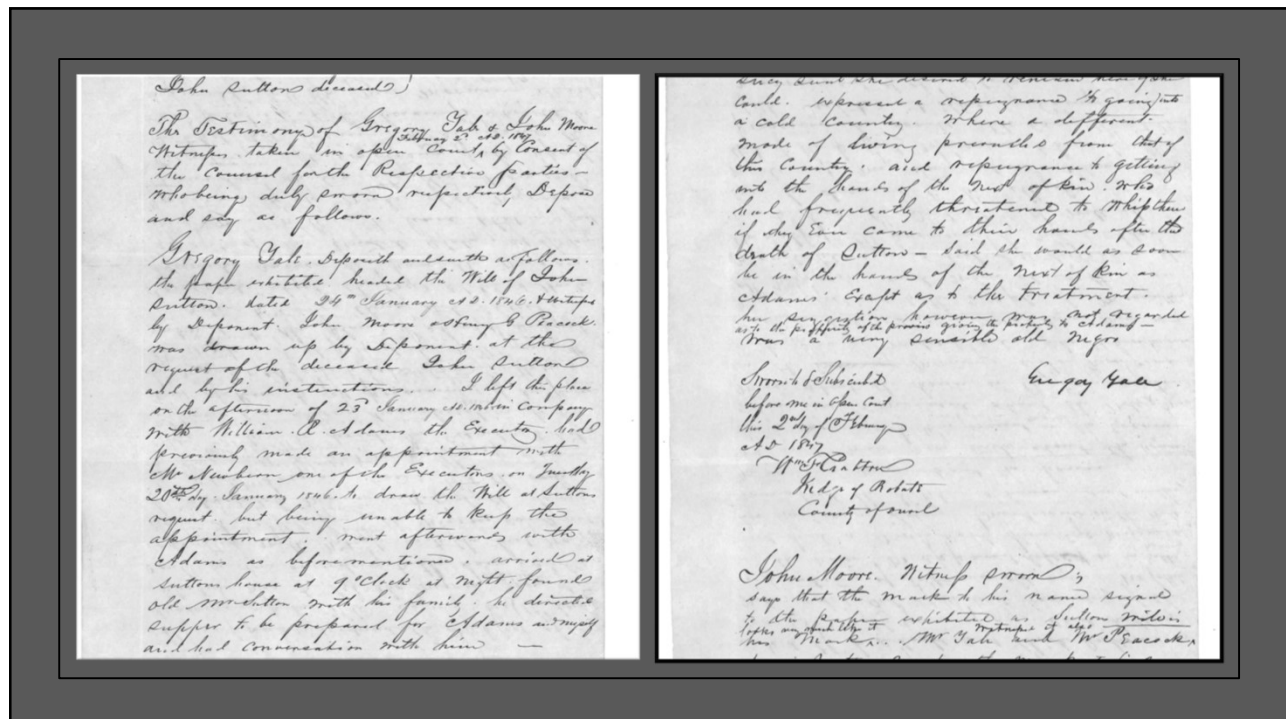 John Sutton deceased)
The Testimony of Gregory Yale & John Moore
February 2d AD. 1847
Witnesses taken in open Court, by Consent of
the Counsel for the Respective parties—
who being duly sworn respectively, Depose
and say as follows.
Gregory Yale. Deposeth and saith as follows.
the paper exhibited headed the Will of John
Sutton. dated 24th January AD. 1846. & witnessed
by Deponent. John Moore & Henry G Peacock.
was drawn up by Deponent at the
request of the deceased John Sutton
and by his instructions. I left this place
on the afternoon of 23d January in company
with William R. Adams the Executor. had
previously made an appointment with
Mr Newbern one of the Executors on Tuesday
20th day January 1846 to draw the Will at Suttons
request, but being unable to keep the
appointment. went afterwards with
Adams as before mentioned. arrived at
Suttons house at 9 oClock at night. found
old Mr Sutton with his family. he directed
supper to be prepared for Adams and myself
and had conversation with him —
she desired to remain here if she
could. expressed a repugnance to going into
a cold country. Where a different
mode of living prevails from that of
this Country. and repugnance to getting
into the hands of the next of kin. who
had frequently threatened to whip them
if they Ever came to their hands after the
death of Sutton — said she would as soon
be in the hands of the next of kin as
Adams' Except as to the treatment.
her suggestion however was not regarded
as to the propriety of the proviso giving the property to Adams—
was a very sensible old negro
Sworn to & Subscribed
Gregory Yale
before me in Open Court
this 2nd day of February
AD 1847
Wm F Crabtree
Judge of Probate
County of Duval
John Moore. Witness sworn;
says that the mark to his name signed
to the paper exhibited as Suttons will is
looks very much like it
witnesses it also
his Mark.. Mr Yale and Mr Peacock